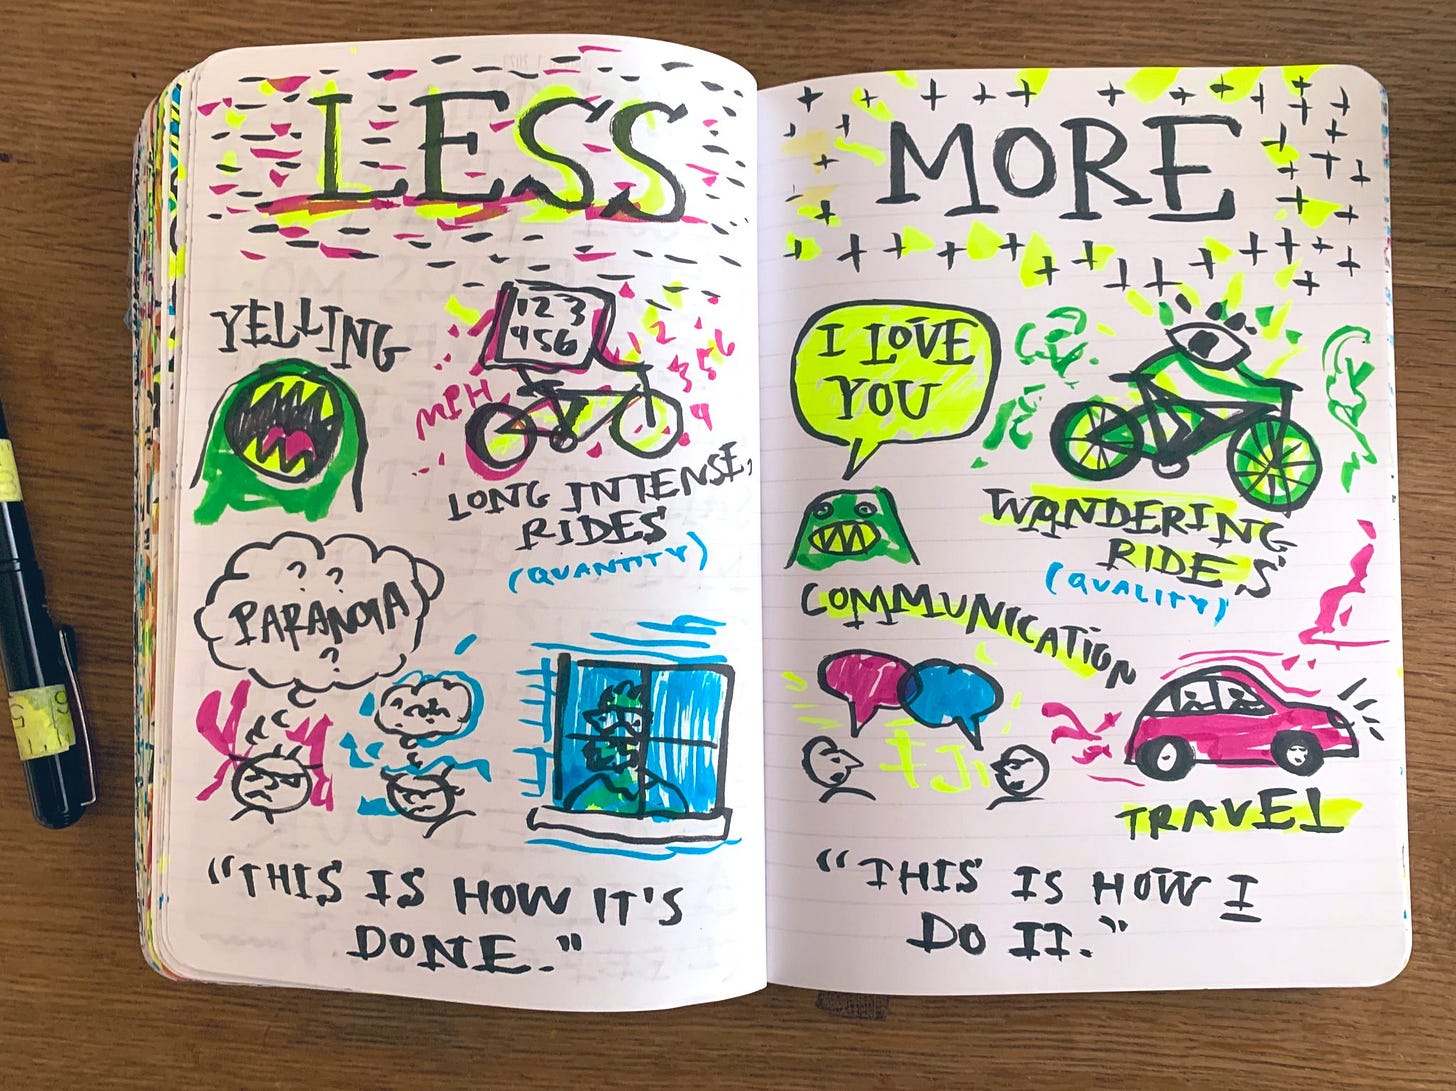 LESS
YELLING
1 2 3
4 5 6
MPH
1 2
3 5 6
4
LONG INTENSE,
RIDES
(QUANTITY)
? ?
PARANOIA
?
"THIS IS HOW IT'S
DONE."
MORE
I LOVE
YOU
WANDERING
RIDES
(QUALITY)
COMMUNICATION
TRAVEL
"THIS IS HOW I
DO IT."